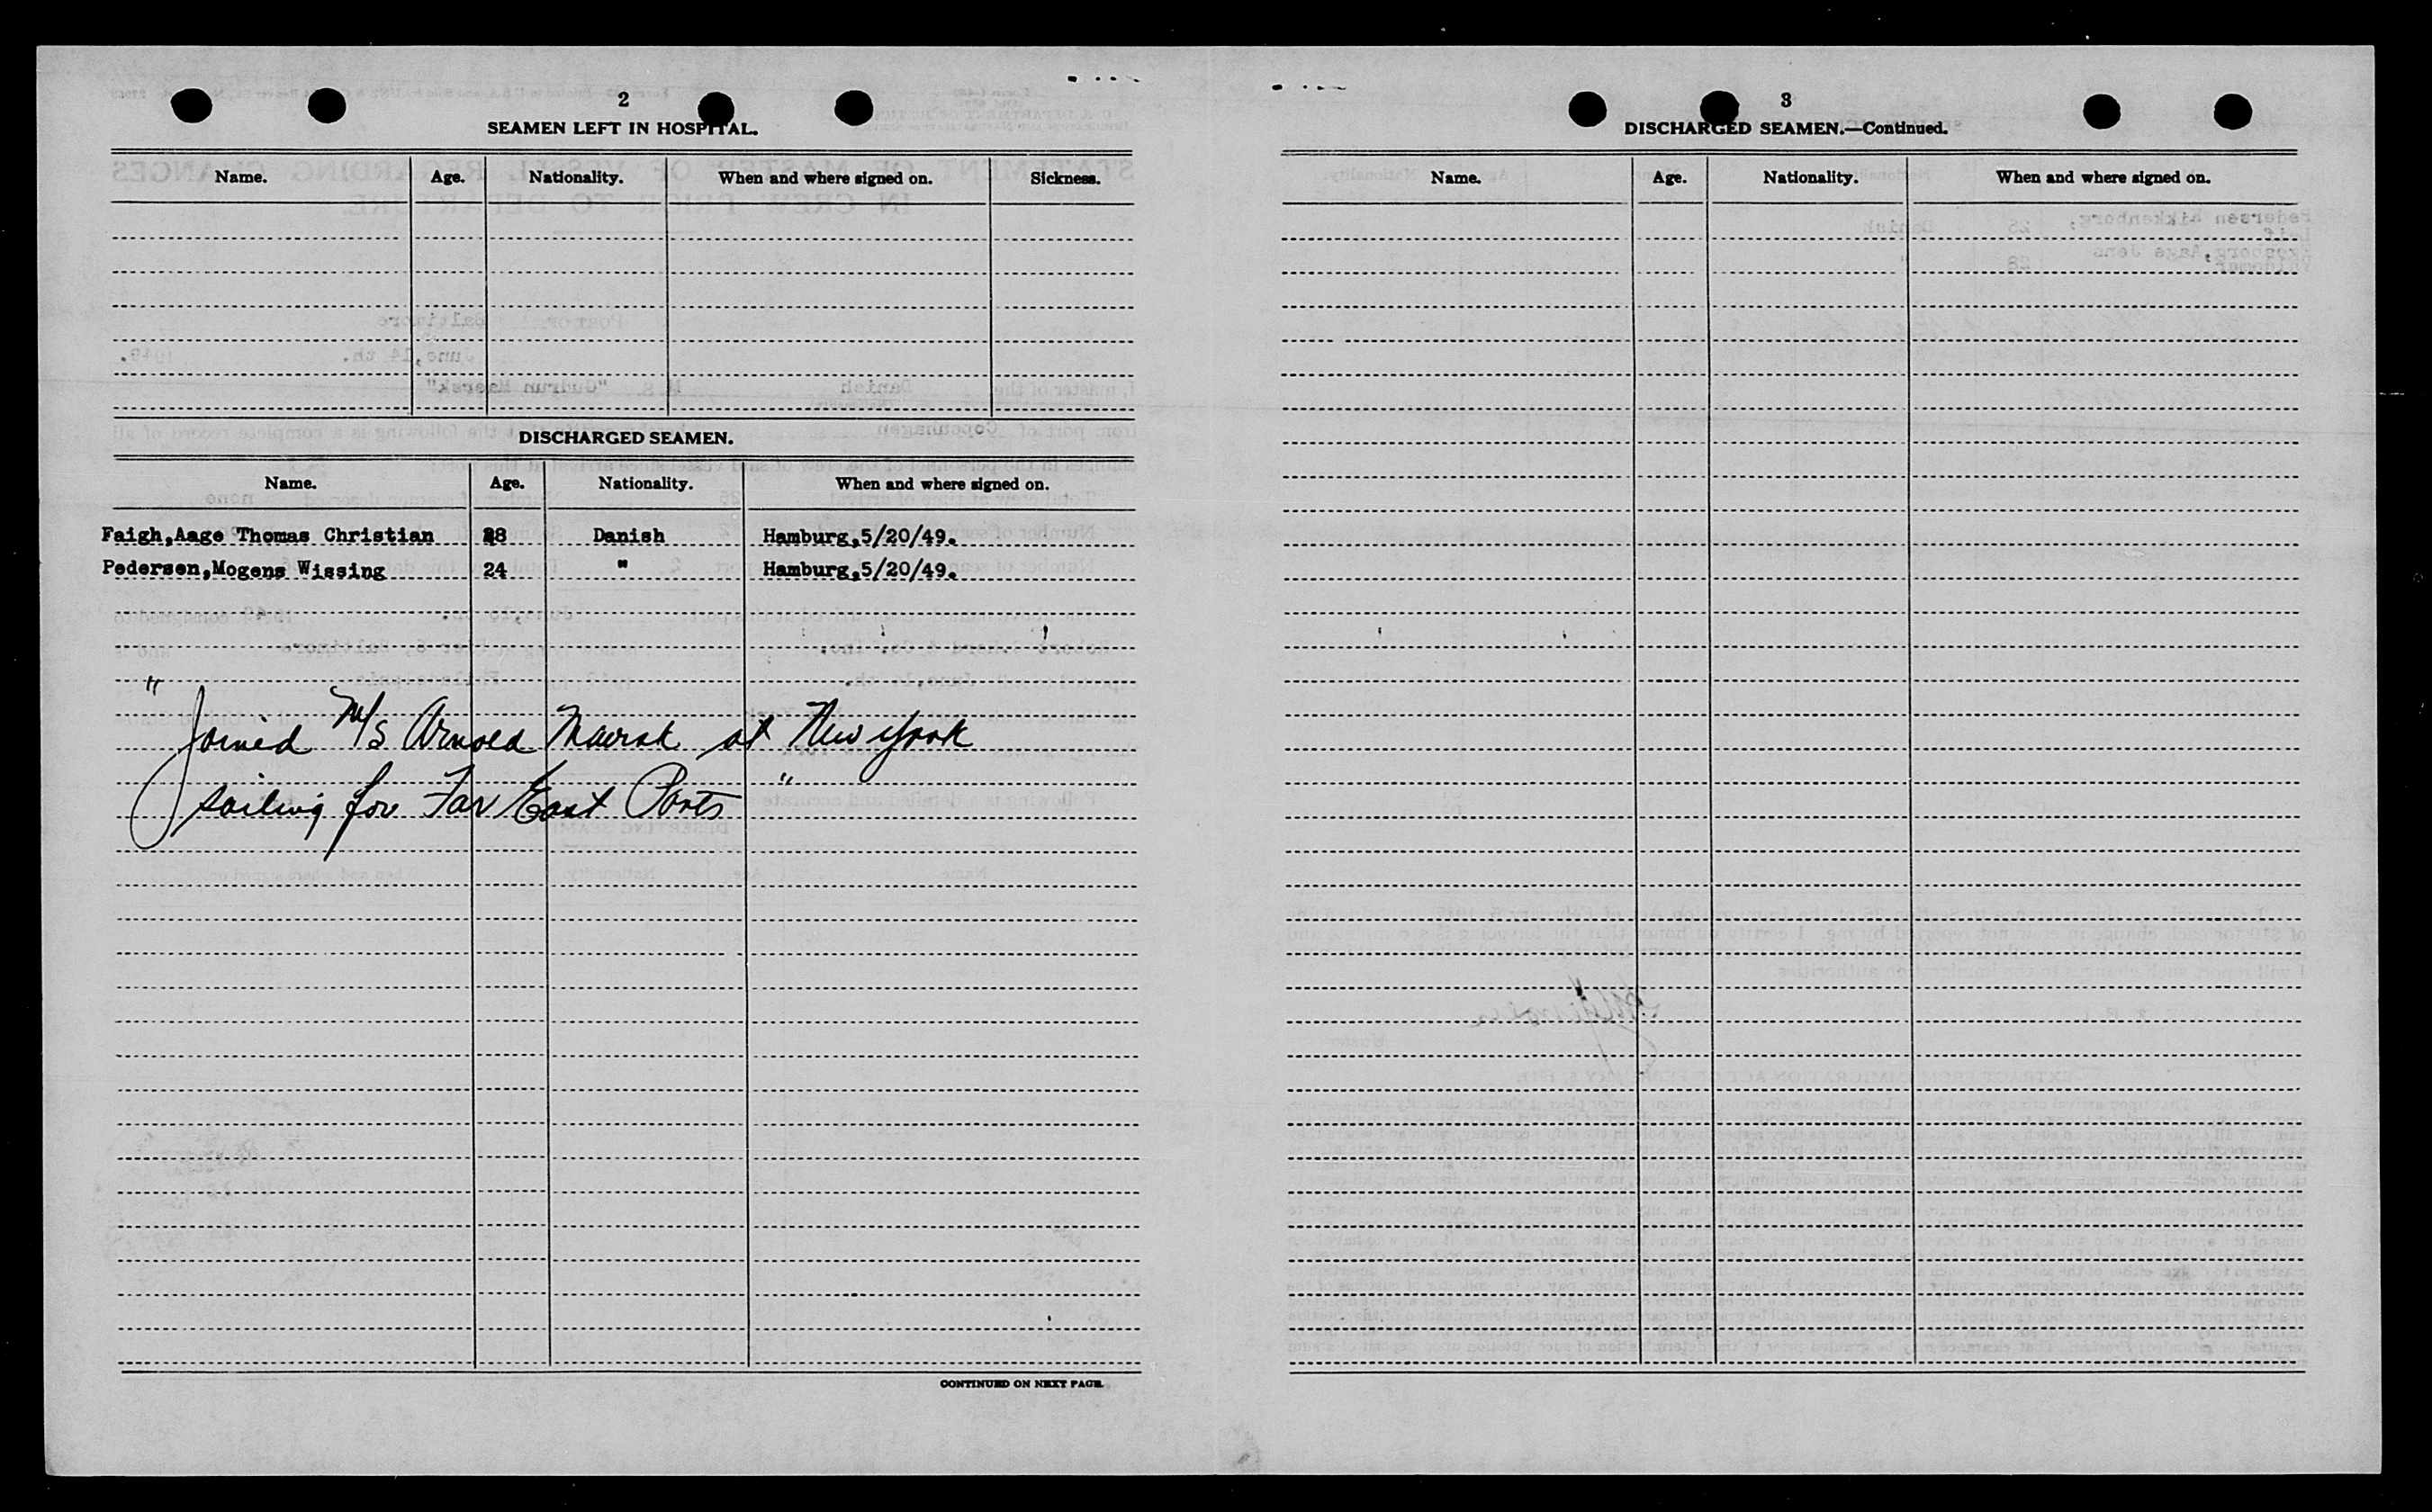 2
SEAMEN LEFT IN HOSPITAL.
Name. Age. Nationality. When and where signed on. Sickness.
DISCHARGED SEAMEN.
Name. Age. Nationality. When and where signed on.
Faigh,Aage Thomas Christian 28 Danish Hamburg,5/20/49.
Pedersen,Mogens Wissing 24 " Hamburg,5/20/49.
" Joined M/S Arnold Maersk at New York
sailing for Far East Ports "
CONTINUED ON NEXT PAGE.
3
DISCHARGED SEAMEN.—Continued.
Name. Age. Nationality. When and where signed on.